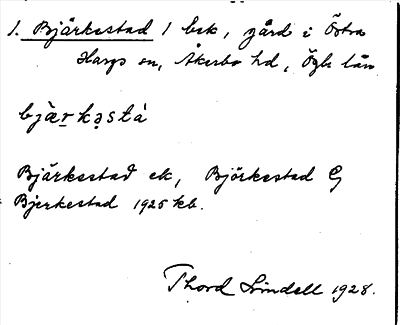 1. Bjärkestad 1 bek, gård i Östra
Hargs sn, Åkerbo hd, Ögls län
bjæ̀rkəstá
Bjärkestad ek, Björkestad G
Bjerkestad 1925 kb.
Thord Lindell 1928.